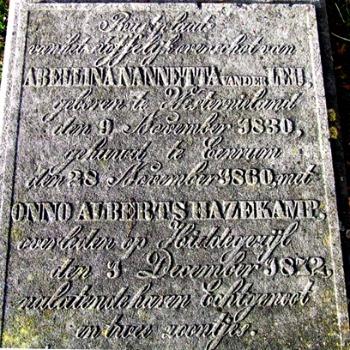 Rustplaats
van het stoffelijk overschot van
ABELLINA NANNETTA VAN DER LEIJ,
geboren te Westernieland
den 9 November 1830,
gehuwd te Eenrum
den 28 November 1860, met
ONNO ALBERTS HAZEKAMP,
overleden op Hiddegezijl
den 3 December 1872,
nalatende haren Echtgenoot
en twee zoontjes.